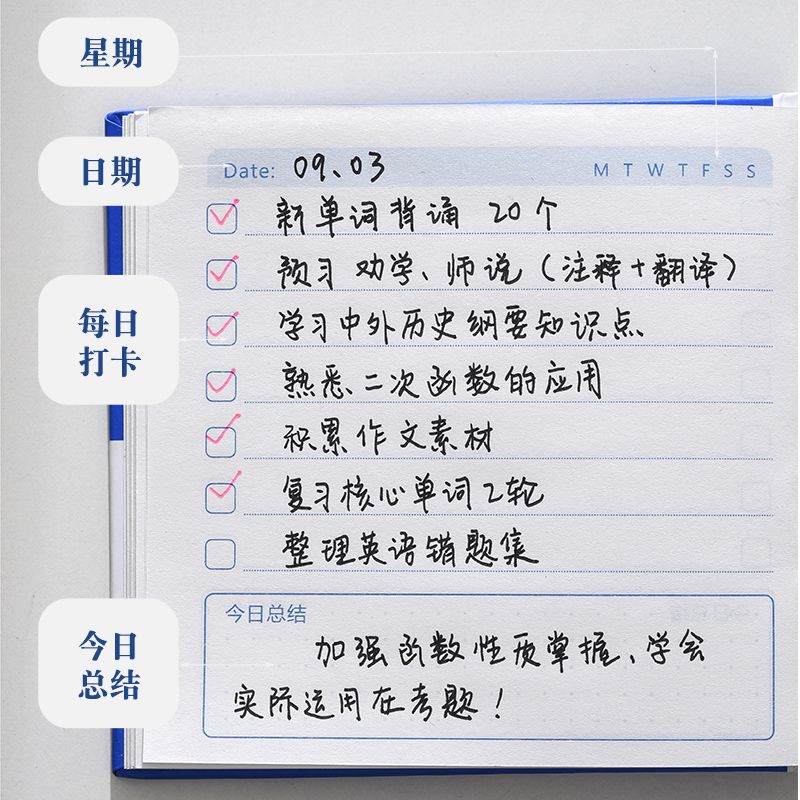 星期
日期
Date: 09.03 M T W T F S S
新单词背诵 20个
预习 劝学、师说（注释+翻译）
每日
打卡
学习中外历史纲要知识点
熟悉二次函数的应用
积累作文素材
复习核心单词2轮
整理英语错题集
今日总结
今日
总结
加强函数性质掌握、学会
实际运用在考题！